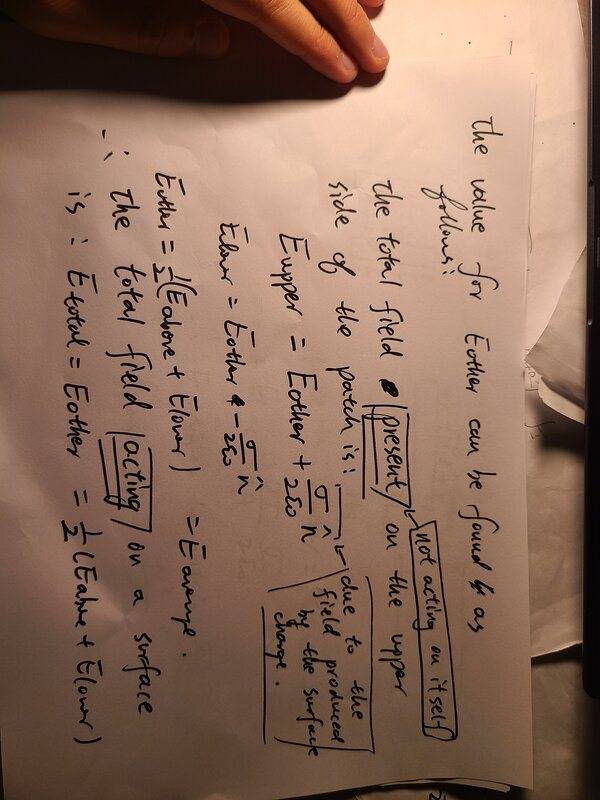 The value for Eother can be found as
follows:
not acting on itself
The total field (present) on the upper
side of the patch is:
Eupper = Eother + σ/2ε₀ n̂
due to the
field produced
by the surface
charge.
Elower = Eother - σ/2ε₀ n̂
Eother = 1/2(Eabove + Elower) = Eaverage.
∴ The total field (acting) on a surface
is: Etotal = Eother = 1/2(Eabove + Elower)